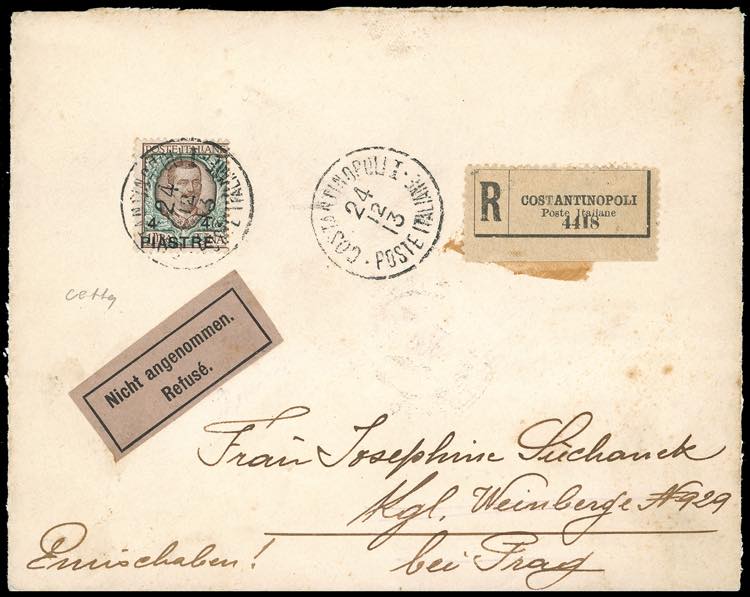 POSTE ITALIANE
4 4
PIASTRE
COSTANTINOPOLI I
· POSTE ITALIANE ·
24
12
13
R
COSTANTINOPOLI
Poste Italiane
4418
Nicht angenommen.
Refusé.
Frau Josephine Suchanek
Kgl. Weinberge No 929
bei Prag
Einschreiben!